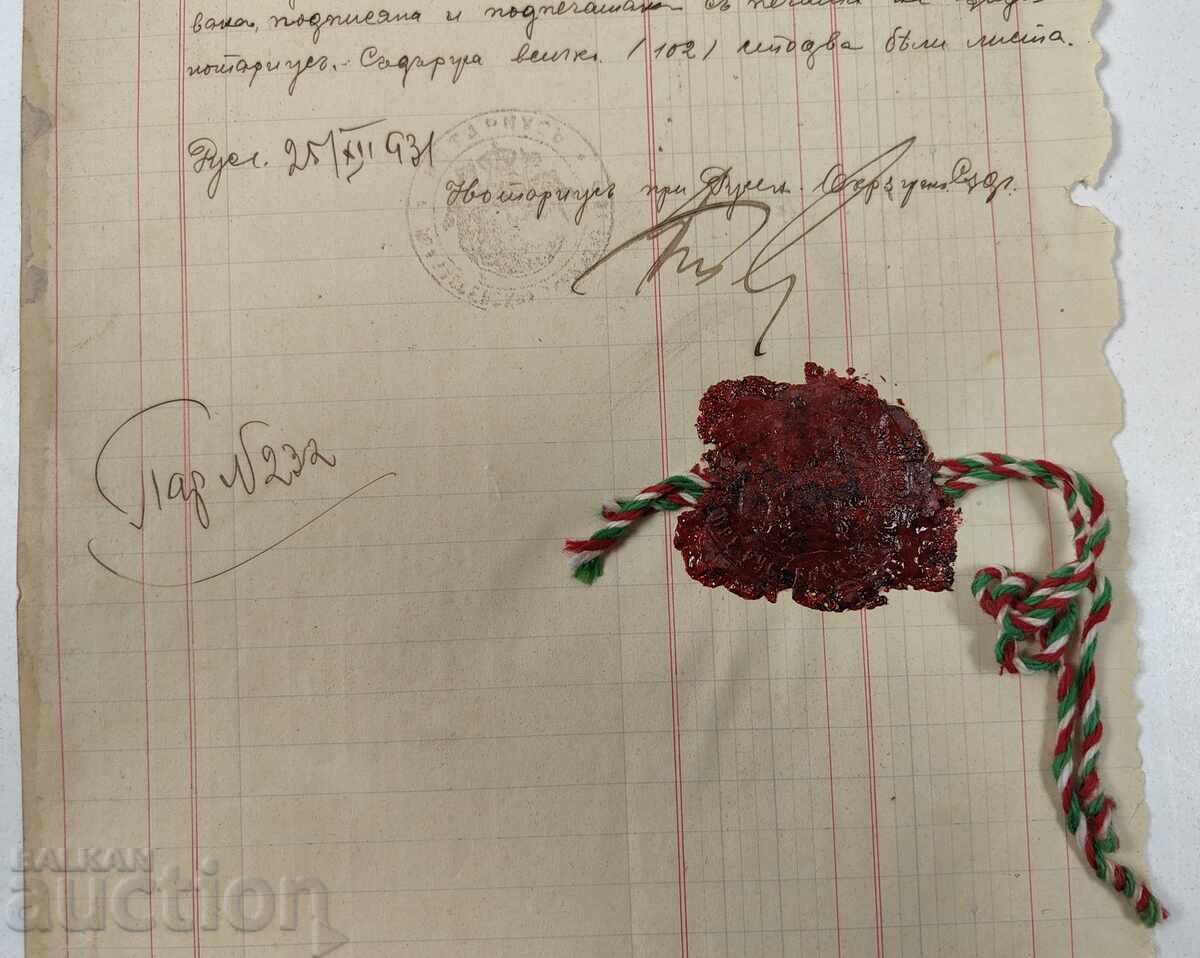 вана, подписана и подпечатана съ печата на
нотариусъ. Съдържа всичко (102) стодва бѣли листа.
Русе. 25/XII 931
Нотариусъ при Русен. Окръженъ Съдъ.
Пар №232
BALKAN
auction